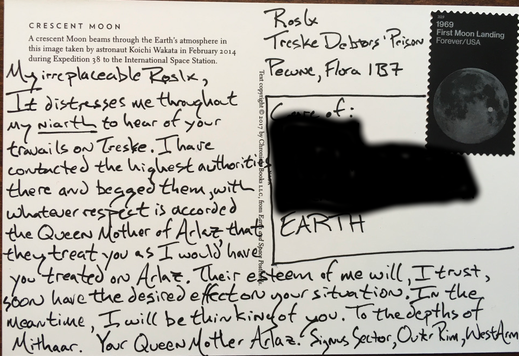 CRESCENT MOON
A crescent Moon beams through the Earth's atmosphere in
this image taken by astronaut Koichi Wakata in February 2014
during Expedition 38 to the International Space Station.
My irreplaceable Roslx,
It distresses me throughout
my niarth to hear of your
travails on Treske. I have
contacted the highest authorities
there and begged them, with
whatever respect is accorded
the Queen Mother of Arlaz, that
they treat you as I would have
you treated on Arlaz. Their esteem of me will, I trust,
soon have the desired effect on your situation. In the
meantime, I will be thinking of you. To the depths of
Mithaar. Your Queen Mother Arlaz. Signus Sector, Outer Rim, West Arm
Text copyright © 2017 by Chronicle Books LLC, from Earth and Space
Roslx
Treske Debtors' Prison
Pecune, Flora 1B7
1969
First Moon Landing
Forever/USA
of:
EARTH